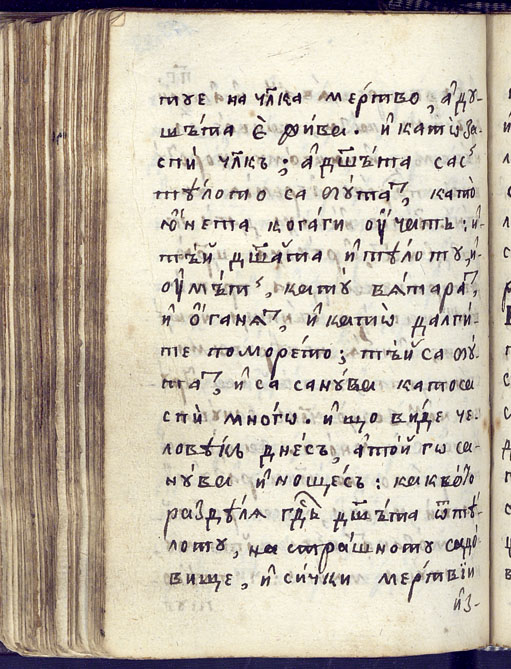 тꙋе на чл҃ка ме́ртво, а҆дꙋ-
шъ́та є҆ жива. и҆като̀за-
спѝ чл҃къ; а҆дш҃ъ́та сас
тѣ́лото са мꙋ́таⷮ, като̀
ю҆́нета кога́ги оу҆́чатъ; и҆-
тъ́й дш҃а́та и҆тѣ́лотꙋ, и҆-
оу҆́мътъ, катꙋ вѧ́тара,
и҆ ѻ҆́ганѧ, и҆като̀ далги-
те по море́то; тъ́й са мꙋ́-
таⷮ, и҆ са санꙋ́ва като са
спѝ мно́гѡ. и҆що ви́де че-
ловѣ́къ дне́съ, а҆то́й го са-
нꙋ́ва и҆ноще́съ: какво́то
раздѣ́лѧ гдⷭ҇ь дш҃ъ́та ѿтѣ́-
лотꙋ, на стра́шнотꙋ садо́-
вище, и҆ си́чки ме́ртвїи
и҆з-